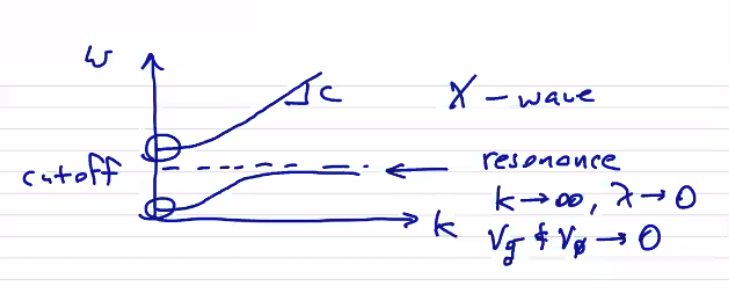 ω
c
X - wave
cutoff
resonance
k → ∞, λ → 0
k
Vg & Vφ → 0